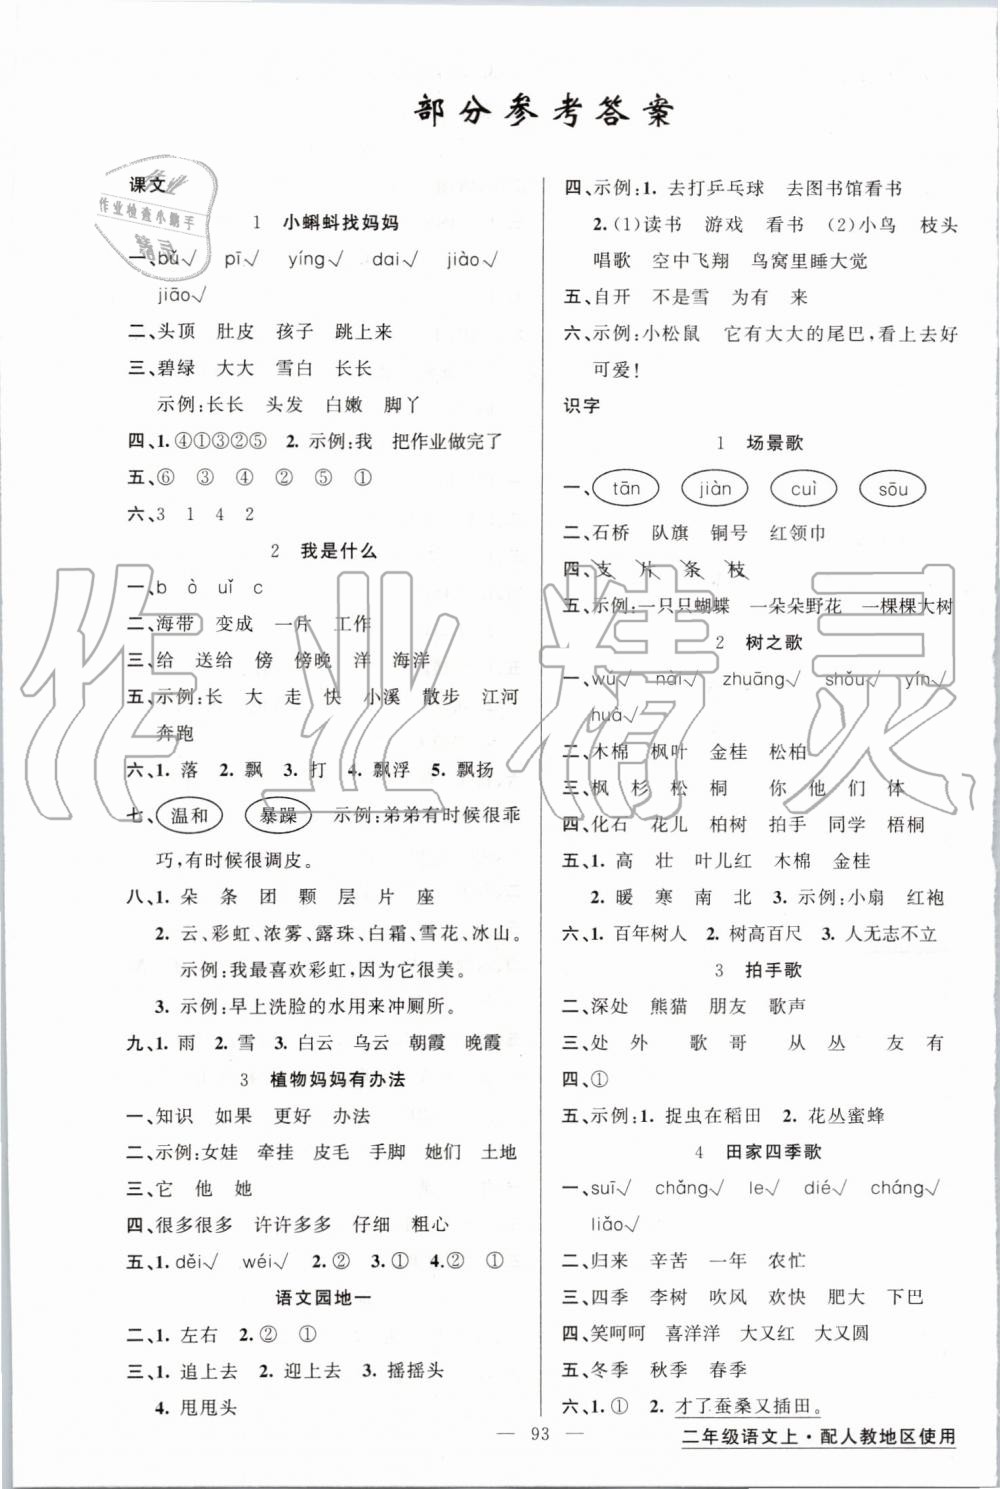 部分参考答案
课文
1 小蝌蚪找妈妈
一、bǔ√ pī√ yíng√ dai√ jiào√
jiāo√
二、头顶 肚皮 孩子 跳上来
三、碧绿 大大 雪白 长长
示例:长长 头发 白嫩 脚丫
四、1. ④①③②⑤ 2. 示例:我 把作业做完了
五、⑥ ③ ④ ② ⑤ ①
六、3 1 4 2
2 我是什么
一、b ò uǐ c
二、海带 变成 一片 工作
三、给 送给 傍 傍晚 洋 海洋
五、示例:长 大 走 快 小溪 散步 江河
奔跑
六、1. 落 2. 飘 3. 打 4. 飘浮 5. 飘扬
七、温和 暴躁 示例:弟弟有时候很乖
巧,有时候很调皮。
八、1. 朵 条 团 颗 层 片 座
2. 云、彩虹、浓雾、露珠、白霜、雪花、冰山。
示例:我最喜欢彩虹,因为它很美。
3. 示例:早上洗脸的水用来冲厕所。
九、1. 雨 2. 雪 3. 白云 乌云 朝霞 晚霞
3 植物妈妈有办法
一、知识 如果 更好 办法
二、示例:女娃 牵挂 皮毛 手脚 她们 土地
三、它 他 她
四、很多很多 许许多多 仔细 粗心
五、1. děi√ wéi√ 2. ② 3. ① 4. ② ①
语文园地一
二、1. 左右 2. ② ①
三、1. 追上去 2. 迎上去 3. 摇摇头
4. 甩甩头
四、示例:1. 去打乒乓球 去图书馆看书
2. (1)读书 游戏 看书 (2)小鸟 枝头
唱歌 空中飞翔 鸟窝里睡大觉
五、自开 不是雪 为有 来
六、示例:小松鼠 它有大大的尾巴,看上去好
可爱!
识字
1 场景歌
一、tān jiàn cuì sōu
二、石桥 队旗 铜号 红领巾
四、支 片 条 枝
五、示例:一只只蝴蝶 一朵朵野花 一棵棵大树
2 树之歌
一、wú√ nài√ zhuāng√ shǒu√ yín√
huà√
二、木棉 枫叶 金桂 松柏
三、枫 杉 松 桐 你 他 们 体
四、化石 花儿 柏树 拍手 同学 梧桐
五、1. 高 壮 叶儿红 木棉 金桂
2. 暖 寒 南 北 3. 示例:小扇 红袍
六、1. 百年树人 2. 树高百尺 3. 人无志不立
3 拍手歌
二、深处 熊猫 朋友 歌声
三、处 外 歌 哥 从 丛 友 有
四、①
五、示例:1. 捉虫在稻田 2. 花丛蜜蜂
4 田家四季歌
一、suī√ chǎng√ le√ dié√ cháng√
liǎo√
二、归来 辛苦 一年 农忙
三、四季 李树 吹风 欢快 肥大 下巴
四、笑呵呵 喜洋洋 大又红 大又圆
五、冬季 秋季 春季
六、1. ① 2. 才了蚕桑又插田。
— 93 —
二年级语文上·配人教地区使用
作业精灵
作业
作业检查小能手